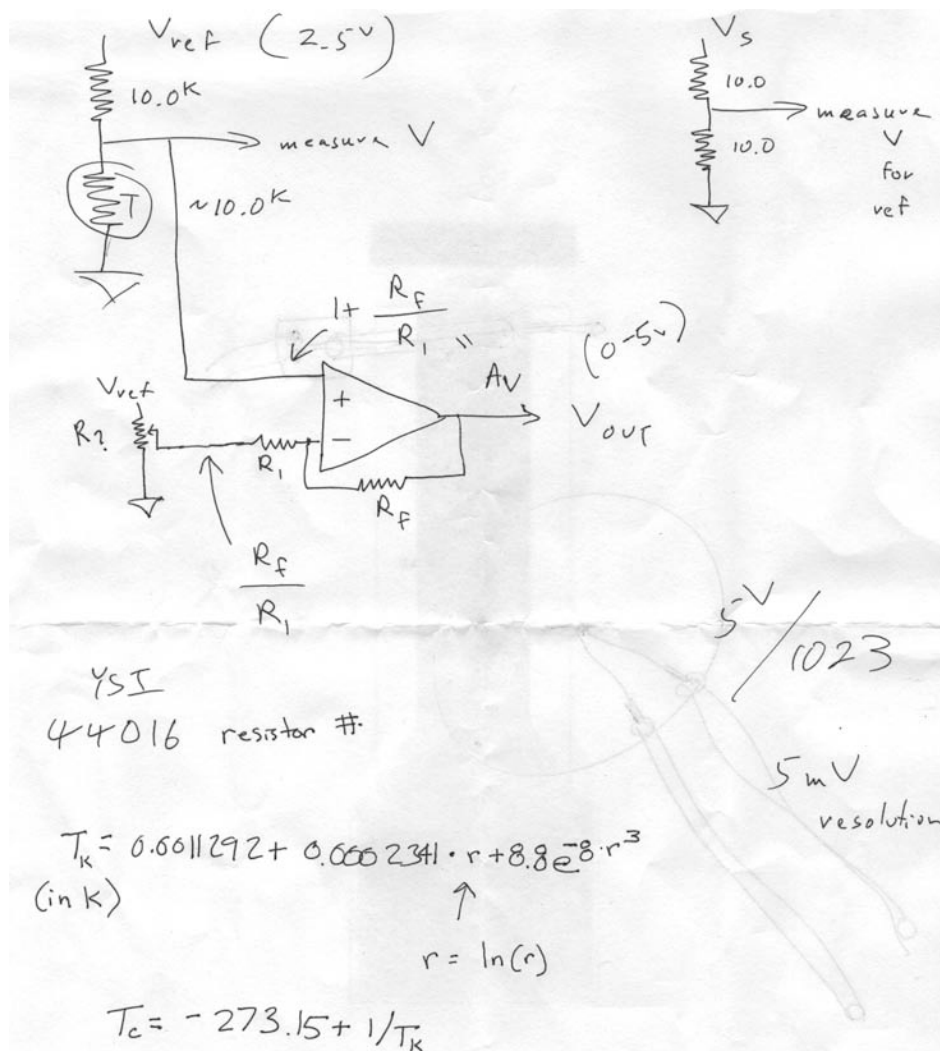 Vref (2.5V)
10.0K
measure V
T
~10.0K
Vs
10.0
measure
10.0
V
for
ref
1+ Rf
R1 "
(0-5V)
Vref
R?
+
−
R1
Rf
AV
VOUT
Rf
R1
5V
/1023
YSI
44016 resistor #
5mV
resolution
TK = 0.0011292 + 0.0002341 · r + 8.8e-8 · r³
(in K)
r = ln(r)
Tc = -273.15 + 1/TK